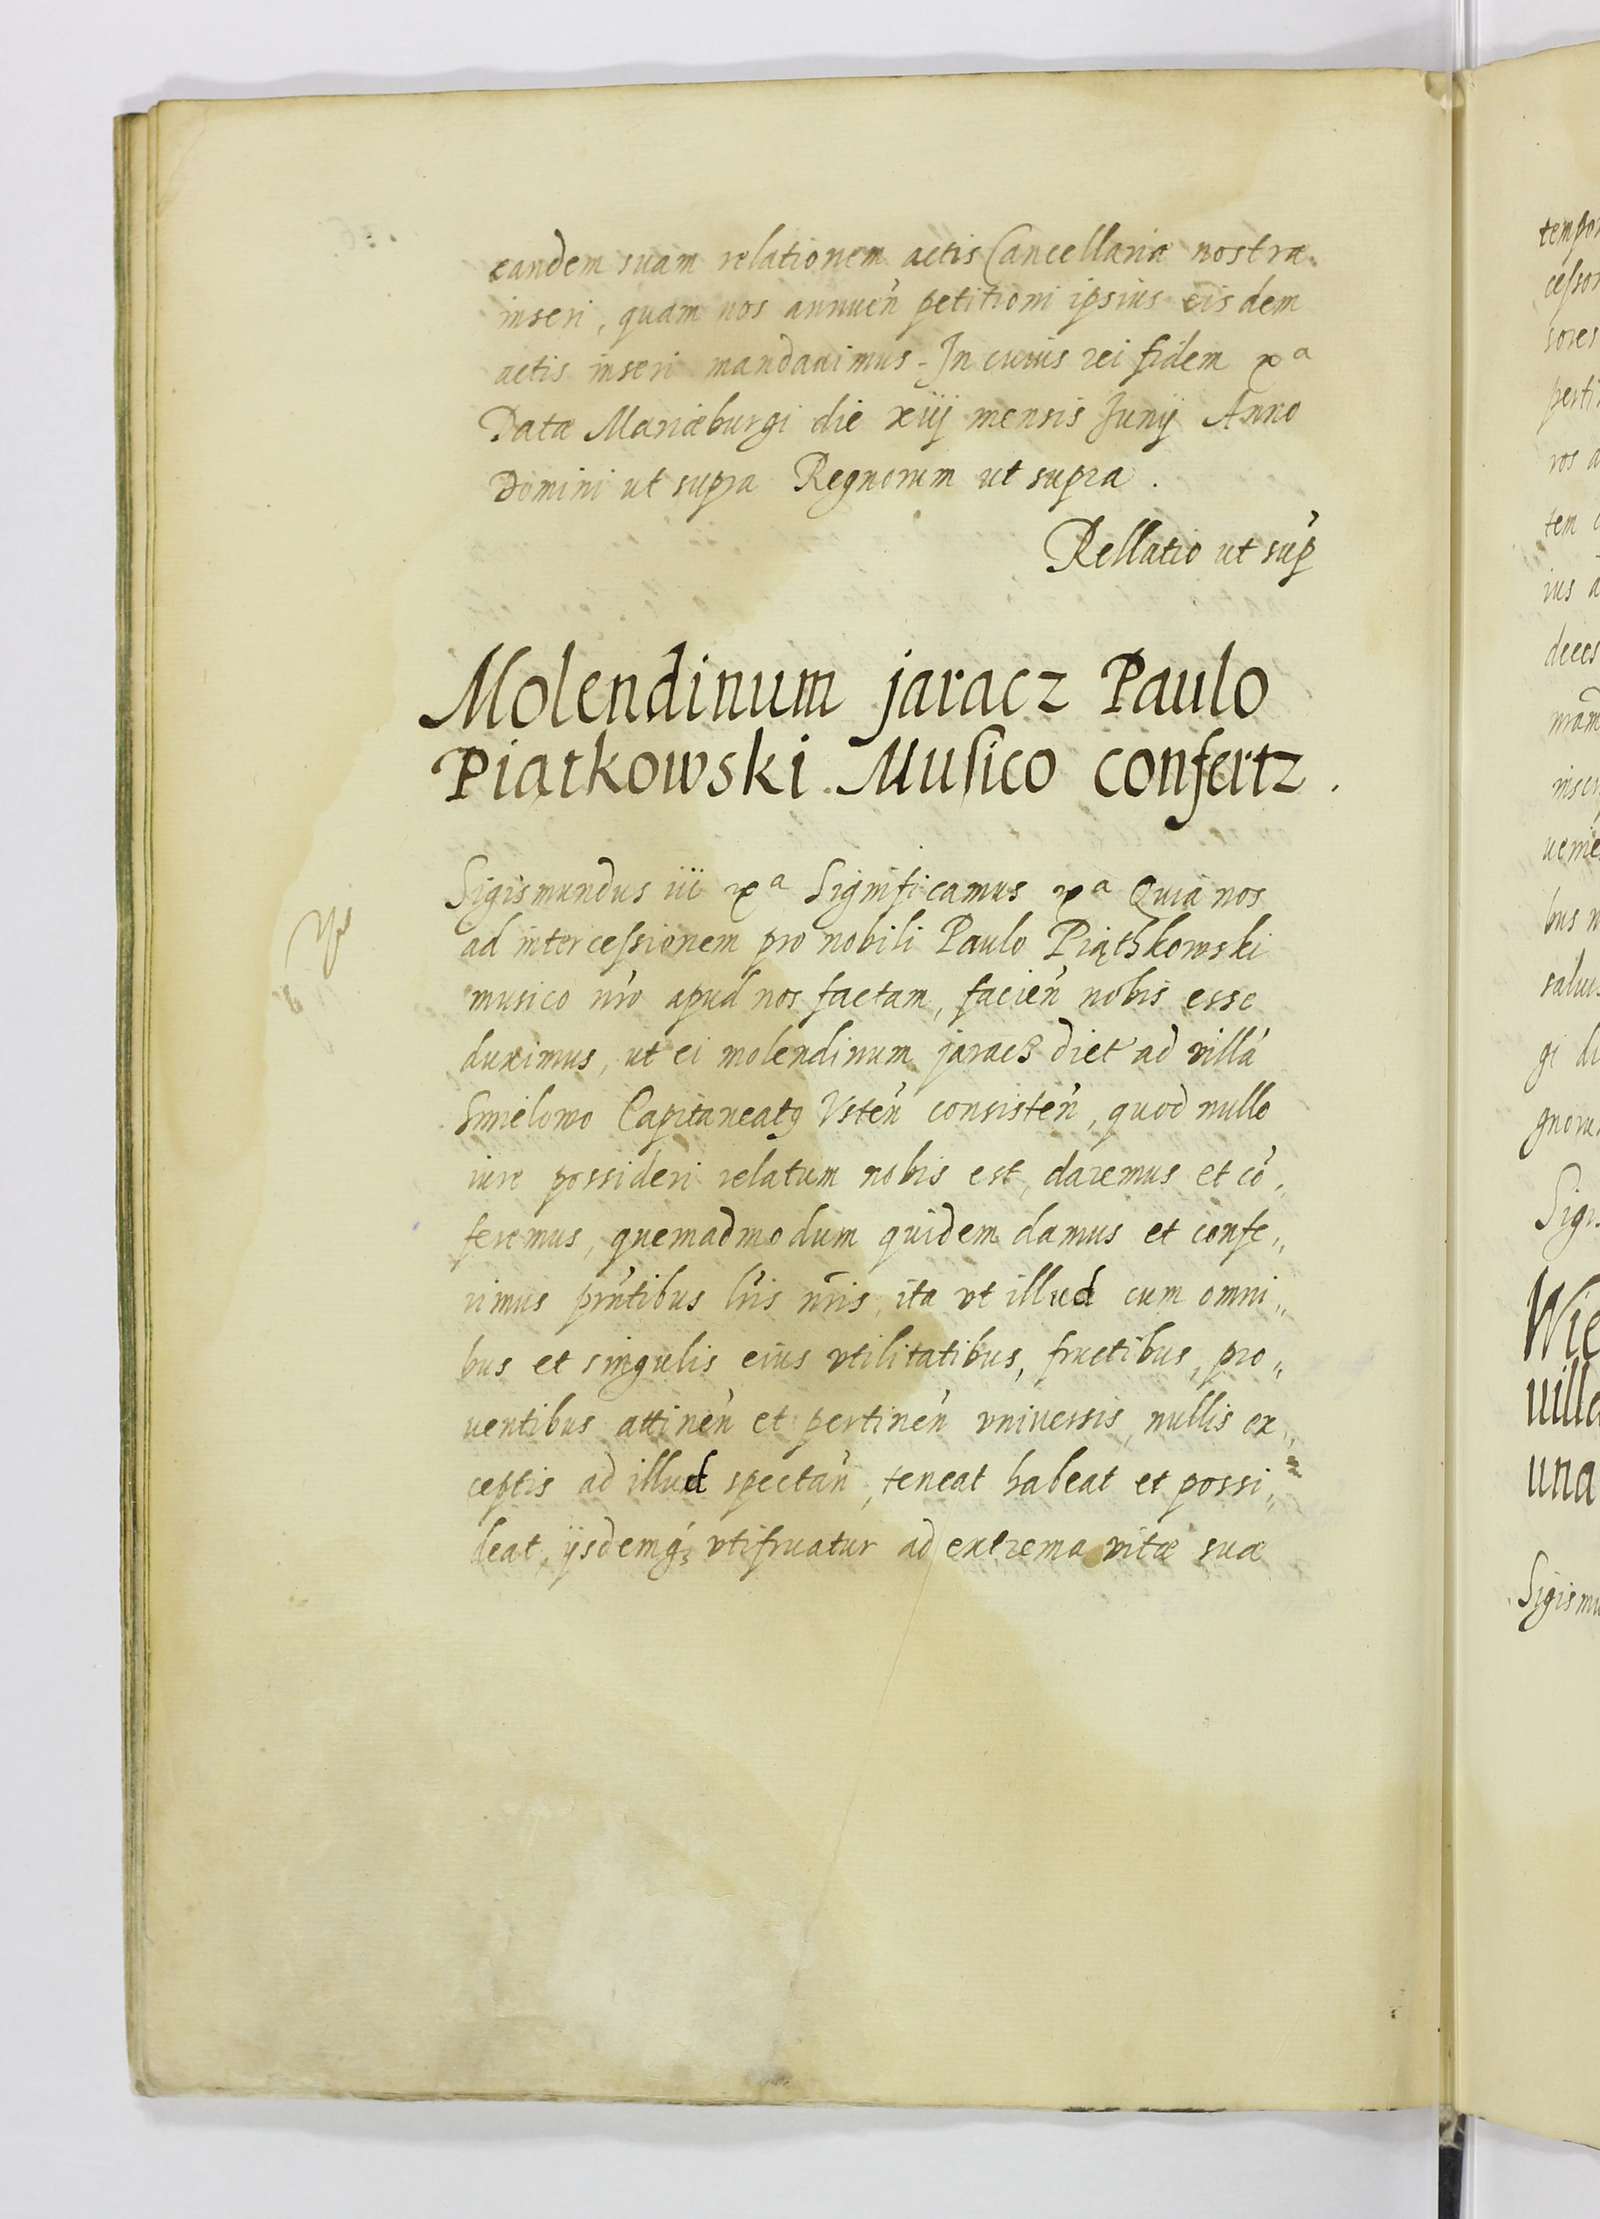 eandem suam relationem actis Cancellariæ nostræ
inseri, quam nos annuen̄ petitioni ipsius eisdem
actis inseri mandauimus - In cuius rei fidem xª
Datæ Mariæburgi die xiij mensis Junij Anno
Domini ut supra Regnorum ut supra.
Rellatio ut sup̄
Molendinum jaracz Paulo
Piątkowski Musico confertz.
Sigismundus iii xª Significamus xª Quia nos
ad intercessionem pro nobili Paulo Piąthkowski
musico nr̄o apud nos factam, facien̄ nobis esse
duximus, ut ei molendinum jaracz dict̄ ad villā
Smielowo Capitaneatꝰ Vsten̄ consisten̄, quod nullo
iure possideri relatum nobis est, daremus et cō„
feremus, quemadmodum quidem damus et confe„
rimus pn̄tibus lr̄is nr̄is, ita vt illud cum omni„
bus et singulis eius vtilitatibus, fructibus, pro„
uentibus attinen̄ et pertinen̄ vniuersis, nullis ex„
ceptis ad illud spectan̄, teneat habeat et possi„
deat, ijsdemq́ꝫ vtifruatur ad extrema vitæ suæ
tempor
cessor
sores
perti
ros a
tem
ius a
deces
nram̄
inser
uenie
bus n
saluis
gi di
gnoru
Sigis
Wie
uilla
una
Sigismu